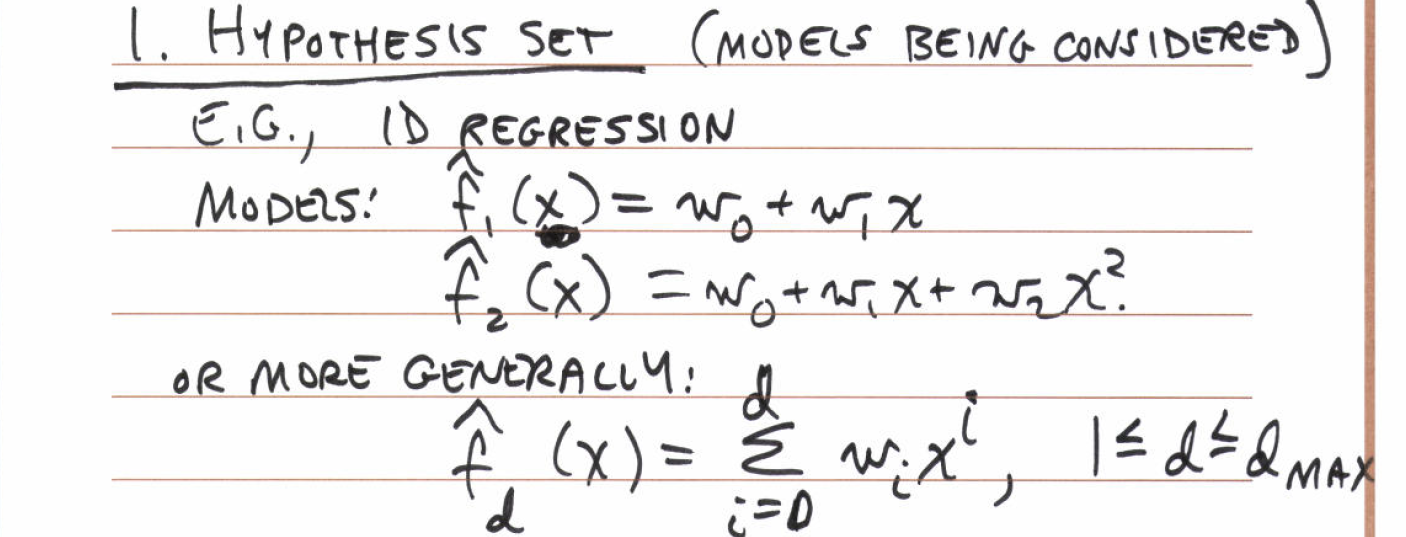 1. HYPOTHESIS SET (MODELS BEING CONSIDERED)
E.G., 1D REGRESSION
MODELS: f̂₁(x) = w₀ + w₁x
f̂₂(x) = w₀ + w₁x + w₂x².
OR MORE GENERALLY:
f̂_d(x) = Σ_{i=0}^{d} w_i x^i, 1 ≤ d ≤ d_MAX